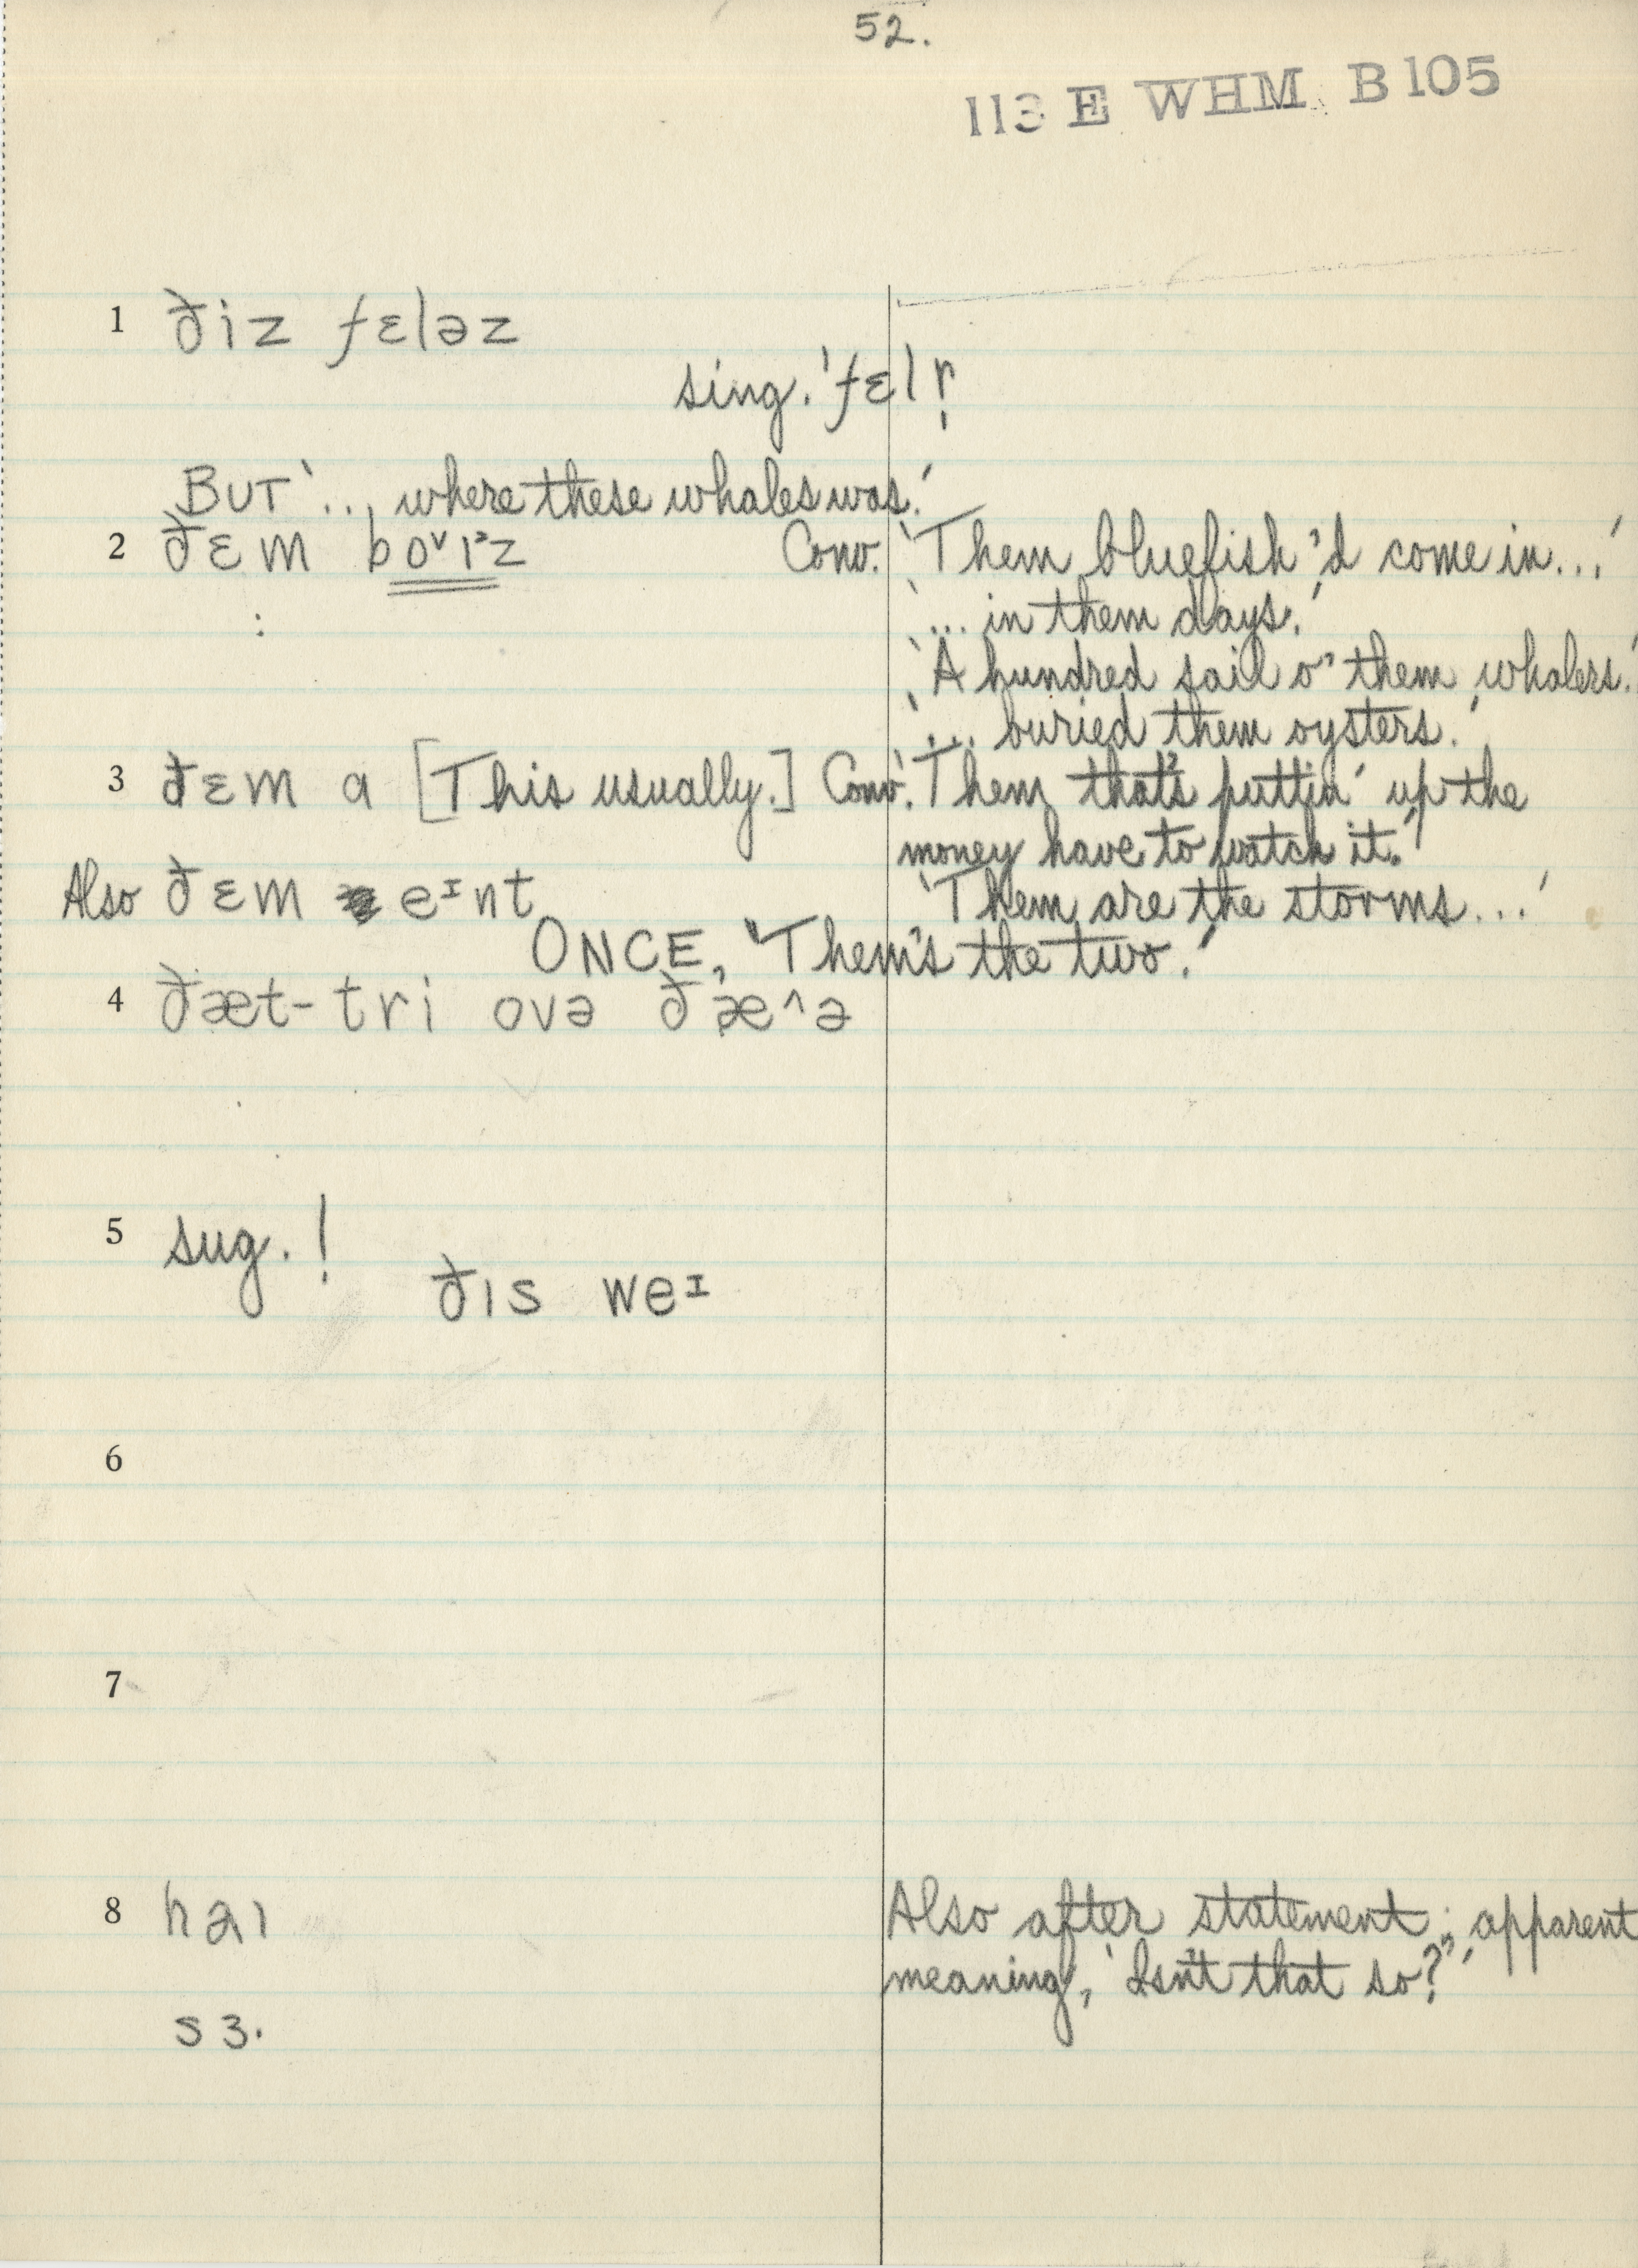 52.
113 E WHM B 105
1 ðiz fɛləz
sing. 'fɛlr̩
BUT '... where these whales was.'
2 ðɛm boᵛɪᵌz Conv. 'Them bluefish 'd come in...'
'... in them days.'
'A hundred sail o' them whalers.'
'... buried them oysters.'
3 ðɛm a [This usually.] Conv. 'Them that's puttin' up the
money have to watch it.'
Also ðɛm eᶦnt 'Them are the storms...'
ONCE, 'Them's the two.'
4 ðæt-tri ovə ðæ^ə
5 sug. !
ðɪs weᶦ
6
7
8 haɪ Also after statement; apparent
meaning, 'Isn't that so?'
sɜ.